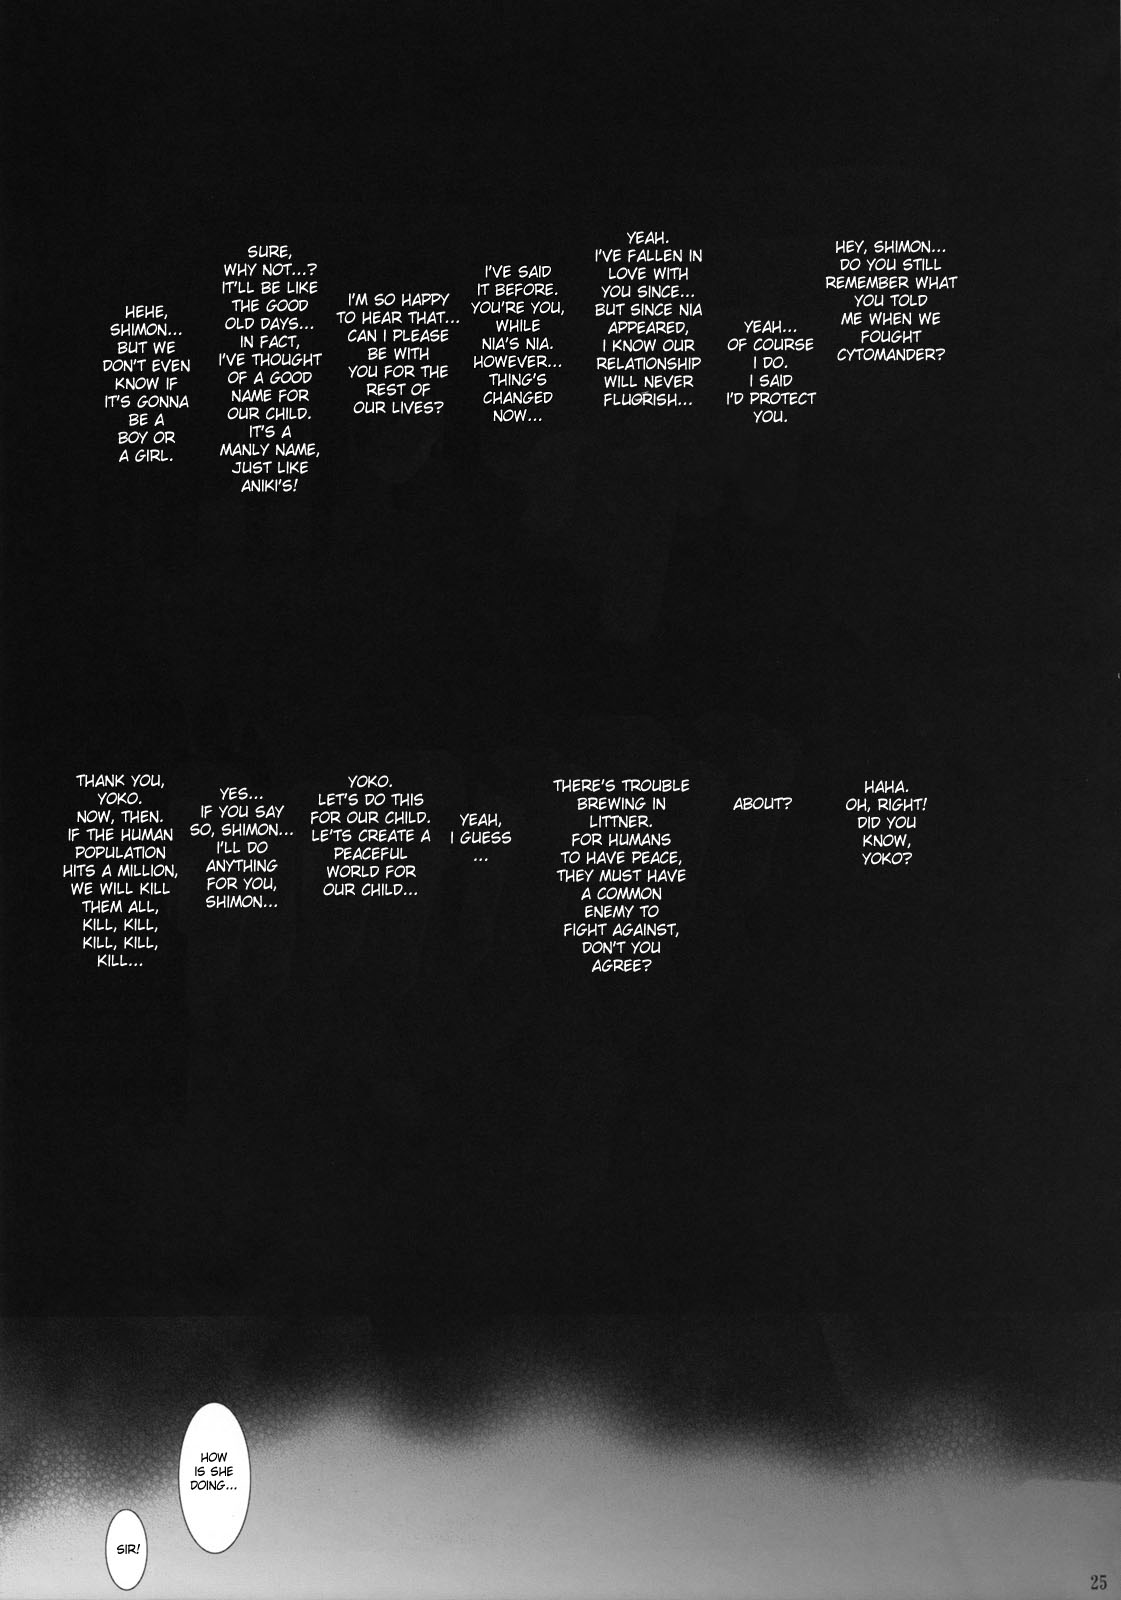 HEY, SHIMON...
DO YOU STILL
REMEMBER WHAT
YOU TOLD
ME WHEN WE
FOUGHT
CYTOMANDER?
YEAH...
OF COURSE
I DO.
I SAID
I'D PROTECT
YOU.
YEAH.
I'VE FALLEN IN
LOVE WITH
YOU SINCE...
BUT SINCE NIA
APPEARED,
I KNOW OUR
RELATIONSHIP
WILL NEVER
FLUORISH...
I'VE SAID
IT BEFORE.
YOU'RE YOU,
WHILE
NIA'S NIA.
HOWEVER...
THING'S
CHANGED
NOW...
I'M SO HAPPY
TO HEAR THAT...
CAN I PLEASE
BE WITH
YOU FOR THE
REST OF
OUR LIVES?
SURE,
WHY NOT...?
IT'LL BE LIKE
THE GOOD
OLD DAYS...
IN FACT,
I'VE THOUGHT
OF A GOOD
NAME FOR
OUR CHILD.
IT'S A
MANLY NAME,
JUST LIKE
ANIKI'S!
HEHE,
SHIMON...
BUT WE
DON'T EVEN
KNOW IF
IT'S GONNA
BE A
BOY OR
A GIRL.
HAHA.
OH, RIGHT!
DID YOU
KNOW,
YOKO?
ABOUT?
THERE'S TROUBLE
BREWING IN
LITTNER.
FOR HUMANS
TO HAVE PEACE,
THEY MUST HAVE
A COMMON
ENEMY TO
FIGHT AGAINST,
DON'T YOU
AGREE?
YEAH,
I GUESS
...
YOKO.
LET'S DO THIS
FOR OUR CHILD.
LE'TS CREATE A
PEACEFUL
WORLD FOR
OUR CHILD...
YES...
IF YOU SAY
SO, SHIMON...
I'LL DO
ANYTHING
FOR YOU,
SHIMON...
THANK YOU,
YOKO.
NOW, THEN.
IF THE HUMAN
POPULATION
HITS A MILLION,
WE WILL KILL
THEM ALL,
KILL, KILL,
KILL, KILL,
KILL...
HOW
IS SHE
DOING...
SIR!
25